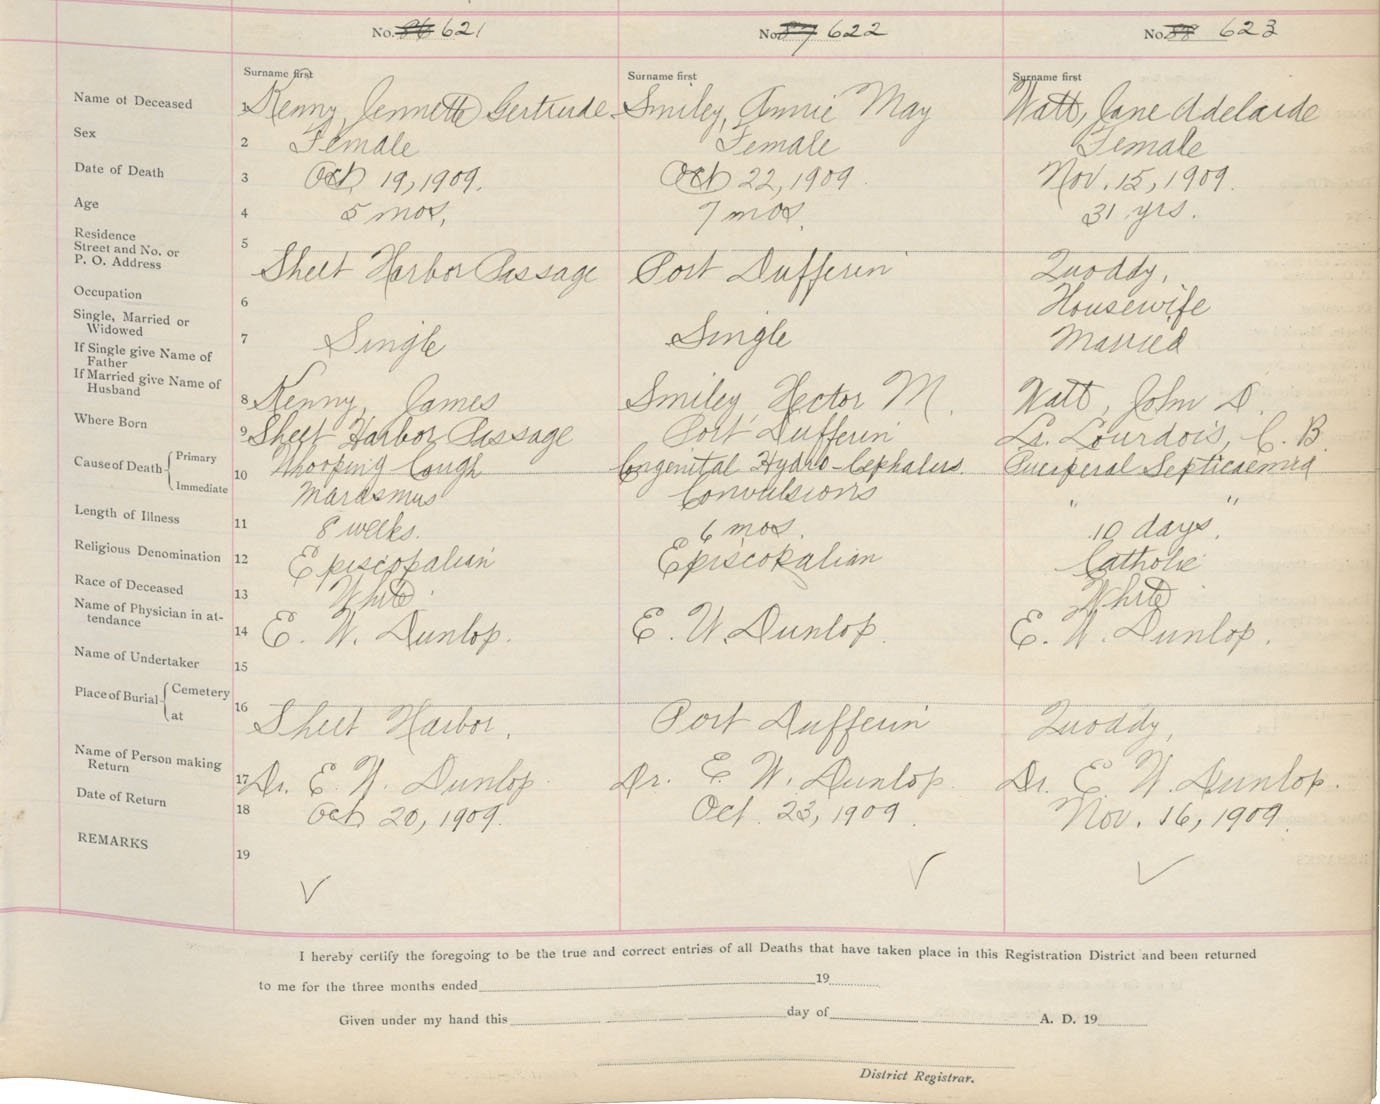 No. 86 621 No. 87 622 No. 88 623
Surname first Surname first Surname first
Name of Deceased 1 Kenny, Jennette Gertrude Smiley, Annie May Watt, Jane Adelaide
Sex 2 Female Female Female
Date of Death 3 Oct 19, 1909. Oct 22, 1909 Nov. 15, 1909.
Age 4 5 mos, 7 mos, 31 yrs.
Residence
Street and No. or
P. O. Address 5 Sheet Harbor Passage Port Dufferin Quoddy,
Occupation 6 Housewife
Single, Married or
Widowed 7 Single Single Married
If Single give Name of
Father
If Married give Name of
Husband 8 Kenny, James Smiley, Hector M. Watt, John D.
Where Born 9 Sheet Harbor Passage Port Dufferin Lourdois, C. B.
Cause of Death Primary 10 Whooping Cough Congenital Hydro-Cephalus. Puerperal Septicaemia
Immediate Marasmus Convulsions " "
Length of Illness 11 8 weeks. 6 mos. 10 days.
Religious Denomination 12 Episcopalian Episcopalian Catholic
Race of Deceased 13 White White
Name of Physician in at-
tendance 14 E. W. Dunlop. E. W. Dunlop. E. W. Dunlop.
Name of Undertaker 15
Place of Burial Cemetery
at 16 Sheet Harbor, Port Dufferin Quoddy,
Name of Person making
Return 17 Dr. E. W. Dunlop. Dr. E. W. Dunlop. Dr. E. W. Dunlop.
Date of Return 18 Oct 20, 1909. Oct. 23, 1909. Nov. 16, 1909.
REMARKS 19
I hereby certify the foregoing to be the true and correct entries of all Deaths that have taken place in this Registration District and been returned
to me for the three months ended 19
Given under my hand this day of A. D. 19
District Registrar.